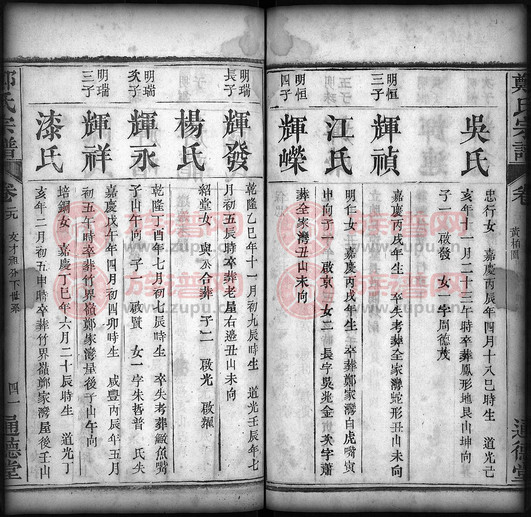 鄭氏宗譜
卷
通德堂
吳氏
忠行女 嘉慶丙辰年四月十八巳時生 道光
亥年十一月二十三午時卒葬鳳形地艮山坤向
子一 啟發 女一字周德茂
明恒三子
輝禎
嘉慶丙戌年生 卒失考葬全家灣蛇形丑山未向
江氏
明仁女 嘉慶丙戌年生 卒葬鄭家灣白虎嘴寅
申向子一 啟京 女二 長字吳兆金 次字蕭
明恒四子
輝嶸
葬全家灣丑山未向
明瑞長子
輝發
乾隆乙巳年十一月初九辰時生 道光壬辰年七
月初五辰時卒葬老屋右邊丑山未向
楊氏
紹堂女 與夫合葬 子二 啟光 啟耀
明瑞次子
輝永
乾隆丁酉年七月初七辰時生 卒失考葬敝魚嘴
子山午向 子一 啟賢 女一字朱哲普 氏失
明瑞三子
輝祥
嘉慶戊午年四月初四卯時生 咸豐丙辰年五月
初五午時卒葬竹界嶺鄭家灣屋後子山午向
漆氏
培錮女 嘉慶丁巳年六月二十辰時生 道光丁
亥年二月初五申時卒葬竹界嶺鄭家灣屋後壬山
鄭氏宗譜
卷
四一
通德堂
族谱网
www.zupu.cn